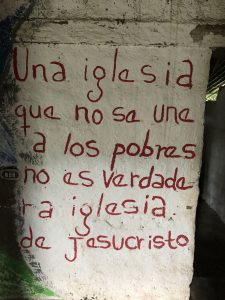 Una iglesia
que no se une
a los pobres
no es verdade
ra iglesia.
de Jesucristo